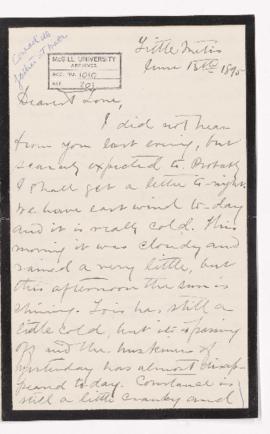 McGILL UNIVERSITY
ARCHIVES
ACC. NO. 1010
REF.
Little Metis
June 18th 1895
Dearest Love,
I did not hear
from you last evening, but
scarcely expected to. Probably
I shall get a letter to-night.
We have east wind to-day
and it is really cold. This
morning it was cloudy and
rained a very little, but
this afternoon the sun is
shining. Lois has still a
little cold, but it is passing
off and the huskiness of
yesterday has almost disap-
peared to day. Constance is
still a little cranky and